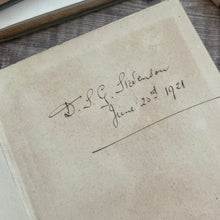 D. S. G. Stevenson
June 23rd 1921